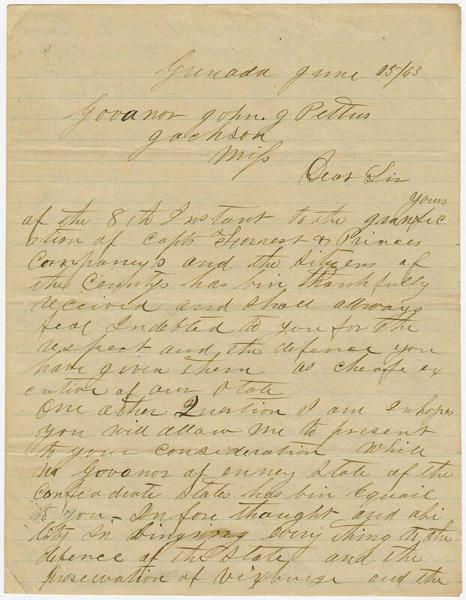 Grenada June 15/63
Govanor John J Pettus
Jackson
Miss
Dear Sir
yours
of the 8th Instant to the gratific
ation of Capts Forrest & Princes
Companeys and the Sitizens of
the County has bin thankfully
received and shall allways
feal Indebted to you for the
respect and the defence you
have given them as cheafe ex
cutive of our State
One other Question I am In hopes
you will allow me to present
to your consideration While
no Govanor of enney State of the
Confeadrate States has bin Equail
to you In fore thought and abi
lity In bringing every thing to the
defence of the State and the
preservation of Vixburge and the